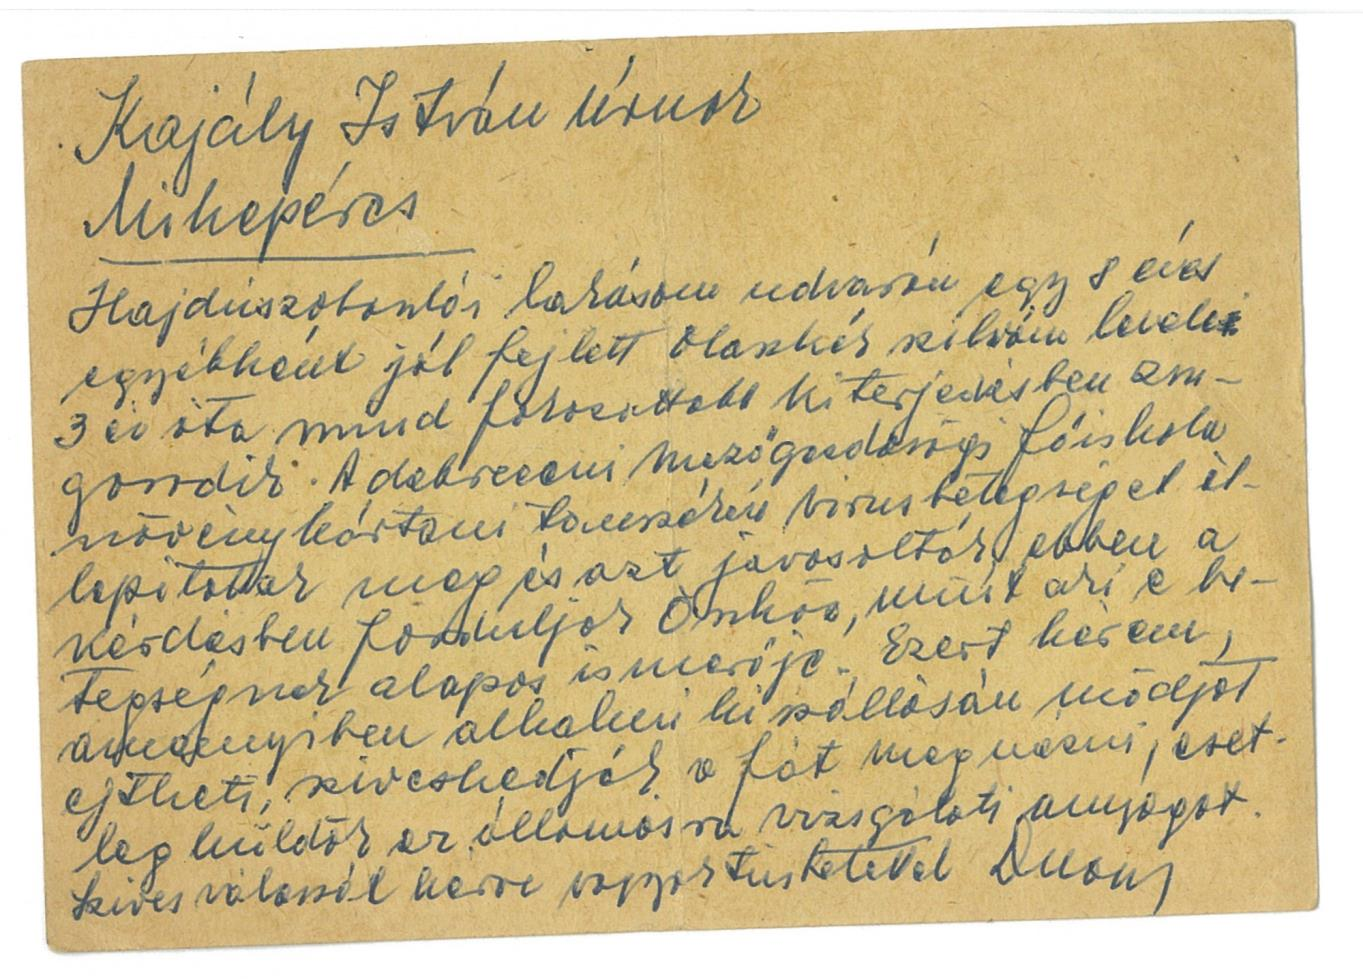 Kajály István Úrnak
Mikepércs
Hajdúszoboszlói lakásom udvarán egy 8 éves
egyébként jól fejlett Olaszkék szilvám levelei
3 év óta mind fokozottabb kiterjedésben zsu-
gorodik. A debreceni mezőgazdasági főiskola
növénykórtani tanszékén vírusbetegséget ál-
lapítottak meg és azt javasolták, ebben a
kérdésben forduljak Önhöz, mint aki e be-
tegségnek alapos ismerője. Ezért kérem,
amennyiben alkalmi kiszállásán módját
ejtheti, szíveskedjék a fát megnézni, eset-
leg küldök az állomásra vizsgálati anyagot.
Szíves válaszát kérve vagyok tisztelettel